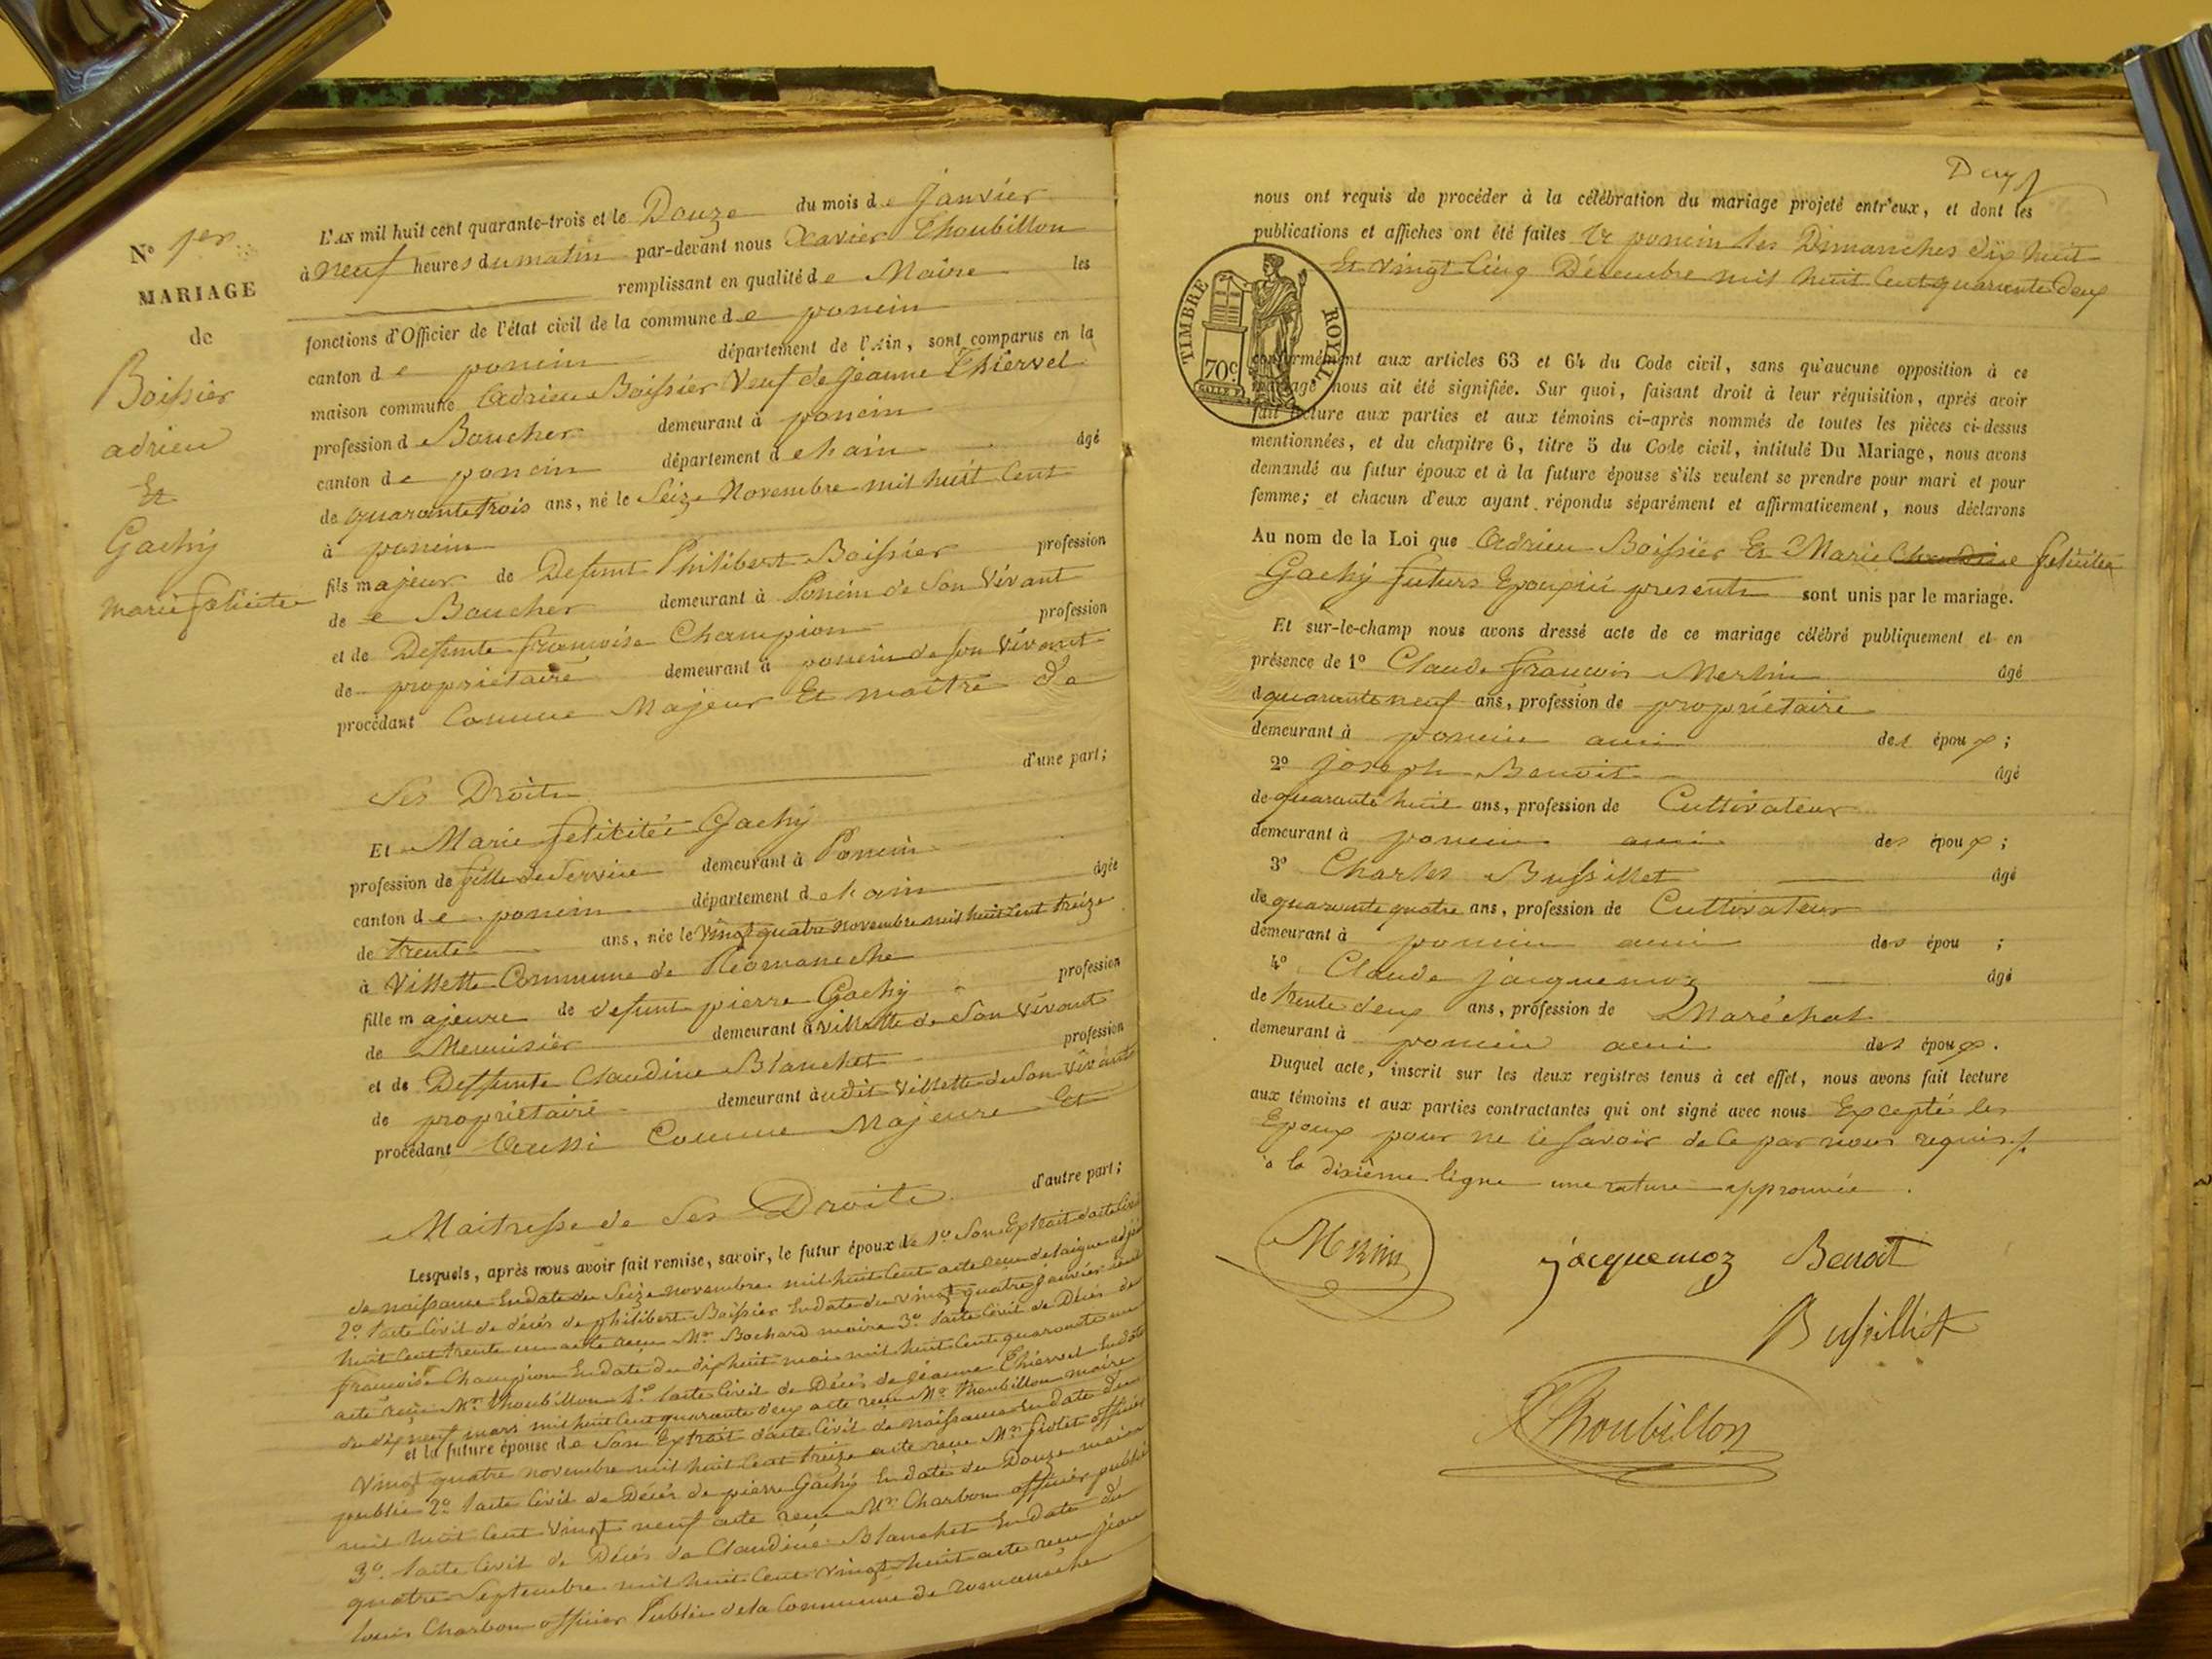 N° 1er
MARIAGE
de
Boissier
adrien
Et
Gachy
marie felicitée
L'AN mil huit cent quarante-trois et le Douze du mois de janvier
à neuf heures du matin par-devant nous Xavier Thoubillon
remplissant en qualité de Maire les
fonctions d'Officier de l'état civil de la commune de poncin
canton de poncin département de l'Ain, sont comparus en la
maison commune Adrien Boissier Veuf de jeanne Thiervel
profession de Boucher demeurant à poncin
canton de poncin département de lain âgé
de quarante trois ans, né le Seize Novembre mil huit Cent
à poncin
fils majeur de Defunt Philibert Boissier profession
de Boucher demeurant à Poncin de Son Vivant
et de Defunte francoise Champion profession
de propriétaire demeurant à poncin de son Vivant
procédant Comme Majeur Et maître de
Ses Droits d'une part;
Et Marie felicitée Gachy
profession de fille de Service demeurant à Poncin
canton de poncin département de lain âgée
de trente ans, née le Vingt quatre Novembre mil huit Cent treize
à Villette Commune de Romaneche
fille majeure de defunt pierre Gachy profession
de Menuisier demeurant à Villette de Son Vivant
et de Deffunte Claudine Blanchet profession
de propriétaire demeurant audit Villette de Son Vivant
procédant Aussi Comme Majeure Et
Maitresse de Ses Droits d'autre part;
Lesquels, après nous avoir fait remise, savoir, le futur époux de 1° Son Extrait d'acte Civil
de naissance En date du Seize novembre mil huit Cent acte recu delaigue adjoint
2° l'acte Civil de décès de philibert Boissier En date du vingt quatre janvier mil
huit Cent trente un acte recu Mr Bochard maire 3° l'acte Civil de Décès de
francoise Champion En date du dix huit mai mil huit Cent quarante un
acte recu Mr Thoubillon 4° l'acte Civil de Décès de jeanne Thiervel En date
du dix neuf mars mil huit Cent quarante deux acte recu Mr Thoubillon maire
et la future épouse de Son Extrait d'acte Civil de naissance En date du
Vingt quatre novembre mil huit Cent treize acte recu Mr officier
public 2° l'acte Civil de Décès de pierre Gachy En date du Douze mai
mil huit Cent Vingt neuf acte recu Mr Charbon officier public
3° l'acte Civil de Décès de Claudine Blanchet En date du
quatre Septembre mil huit Cent Vingt huit acte recu jean
louis Charbon officier Public de la Commune de romaneche
nous ont requis de procéder à la célébration du mariage projeté entr'eux, et dont les
publications et affiches ont été faites à poncin les Dimanches dix huit
Et Vingt Cinq Décembre mil huit Cent quarante Deux
TIMBRE ROYAL
70c
conformément aux articles 63 et 64 du Code civil, sans qu'aucune opposition à ce
mariage nous ait été signifiée. Sur quoi, faisant droit à leur réquisition, après avoir
fait lecture aux parties et aux témoins ci-après nommés de toutes les pièces ci-dessus
mentionnées, et du chapitre 6, titre 5 du Code civil, intitulé Du Mariage, nous avons
demandé au futur époux et à la future épouse s'ils veulent se prendre pour mari et pour
femme; et chacun d'eux ayant répondu séparément et affirmativement, nous déclarons
Au nom de la Loi que Adrien Boissier Et Marie felicitée
Gachy futurs Epoux ici presents sont unis par le mariage.
Et sur-le-champ nous avons dressé acte de ce mariage célébré publiquement et en
présence de 1° Claude francois Merlin âgé
de quarante neuf ans, profession de propriétaire
demeurant à poncin ami des époux;
2° joseph Benoit âgé
de quarante huit ans, profession de Cultivateur
demeurant à poncin ami des époux;
3° Charles Bussillet âgé
de quarante quatre ans, profession de Cultivateur
demeurant à poncin ami des épou ;
4° Claude jacquemoz âgé
de trente deux ans, profession de Maréchal
demeurant à poncin ami des époux.
Duquel acte, inscrit sur les deux registres tenus à cet effet, nous avons fait lecture
aux témoins et aux parties contractantes qui ont signé avec nous Excepté les
Epoux pour ne le Savoir de ce par nous requis
à la dixième ligne une rature approuvée.
Merlin
jacquemoz Benoit
Bussillet
Thoubillon